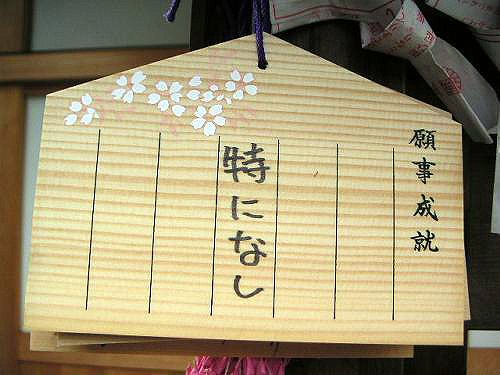 願事成就
特になし